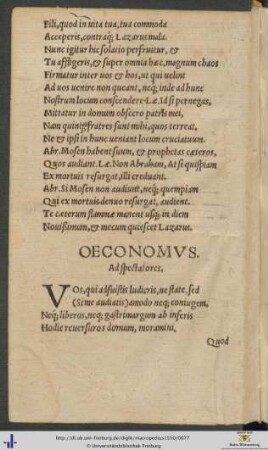 Fili, quod in uita tua, tua commoda
Acceperis, contraq; Lazarus mala.
Nunc igitur hic solatio perfruitur, &
Tu affligeris, & super omnia hæc, magnum chaos
Firmatur inter uos & hos, ut qui uelint
Ad uos uenire non queant, neq; inde ad hunc
Nostrum locum conscendere. Læ. Id si pernegas,
Mittatur in domum obsecro patris mei,
Nam quinq; fratres sunt mihi, quos terreat,
Ne & ipsi in hunc ueniant locum cruciatuum.
Abr. Mosen habent suum, & prophetas cæteros,
Quos audiant. Læ. Non Abraham, At si quispiam
Ex mortuis resurgat, illi credunt.
Abr. Si Mosen non audiunt, neq; quempiam
Qui ex mortuis denuo resurgat, audient.
Te cæterum flammæ manent usq; in diem
Nouissimum, & mecum quiescet Lazarus.
OECONOMVS.
Ad spectatores.
VOs, qui adfuistis ludicris, ne state, sed
(Si me audiatis) amodo neq; coniugem,
Neq; liberos, neq; gastrimargum ab inferis
Hodie reuersuros domum, moramini,
Quod
http://dl.ub.uni-freiburg.de/diglit/macropedius1553/0077
© Universitätsbibliothek Freiburg
Baden-Württemberg